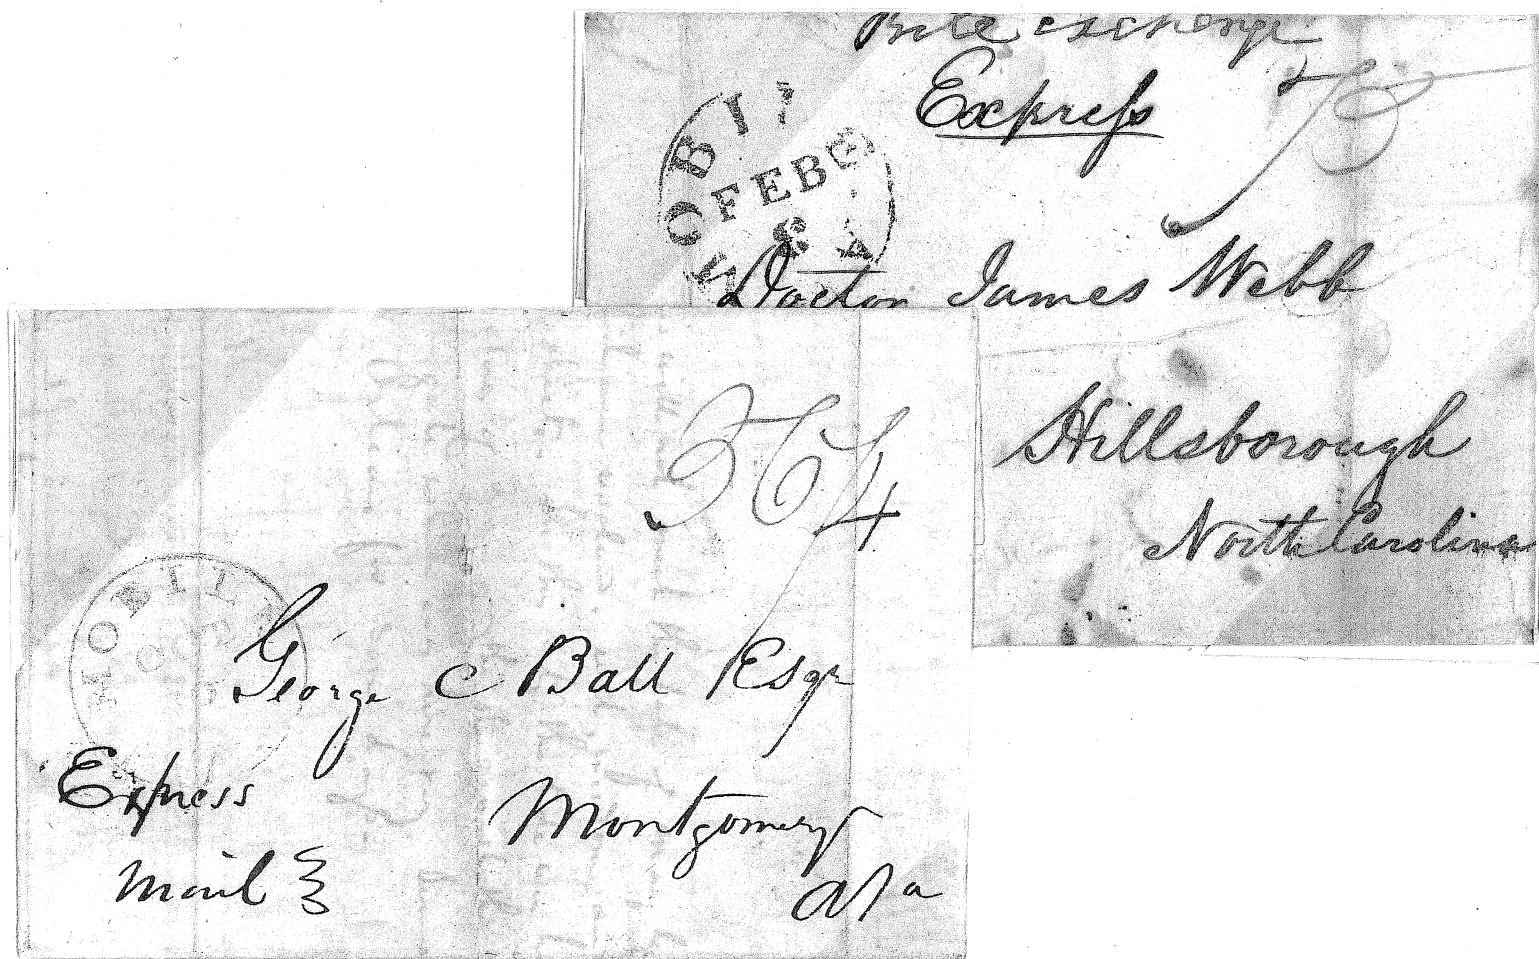 exchange
Express
75
MOBILE
FEB
8
A
Doctor James Webb
Hillsborough
North Carolina
564
MOBILE
OCT
George C Ball Esqr
Express
Mail
Montgomery
Ala